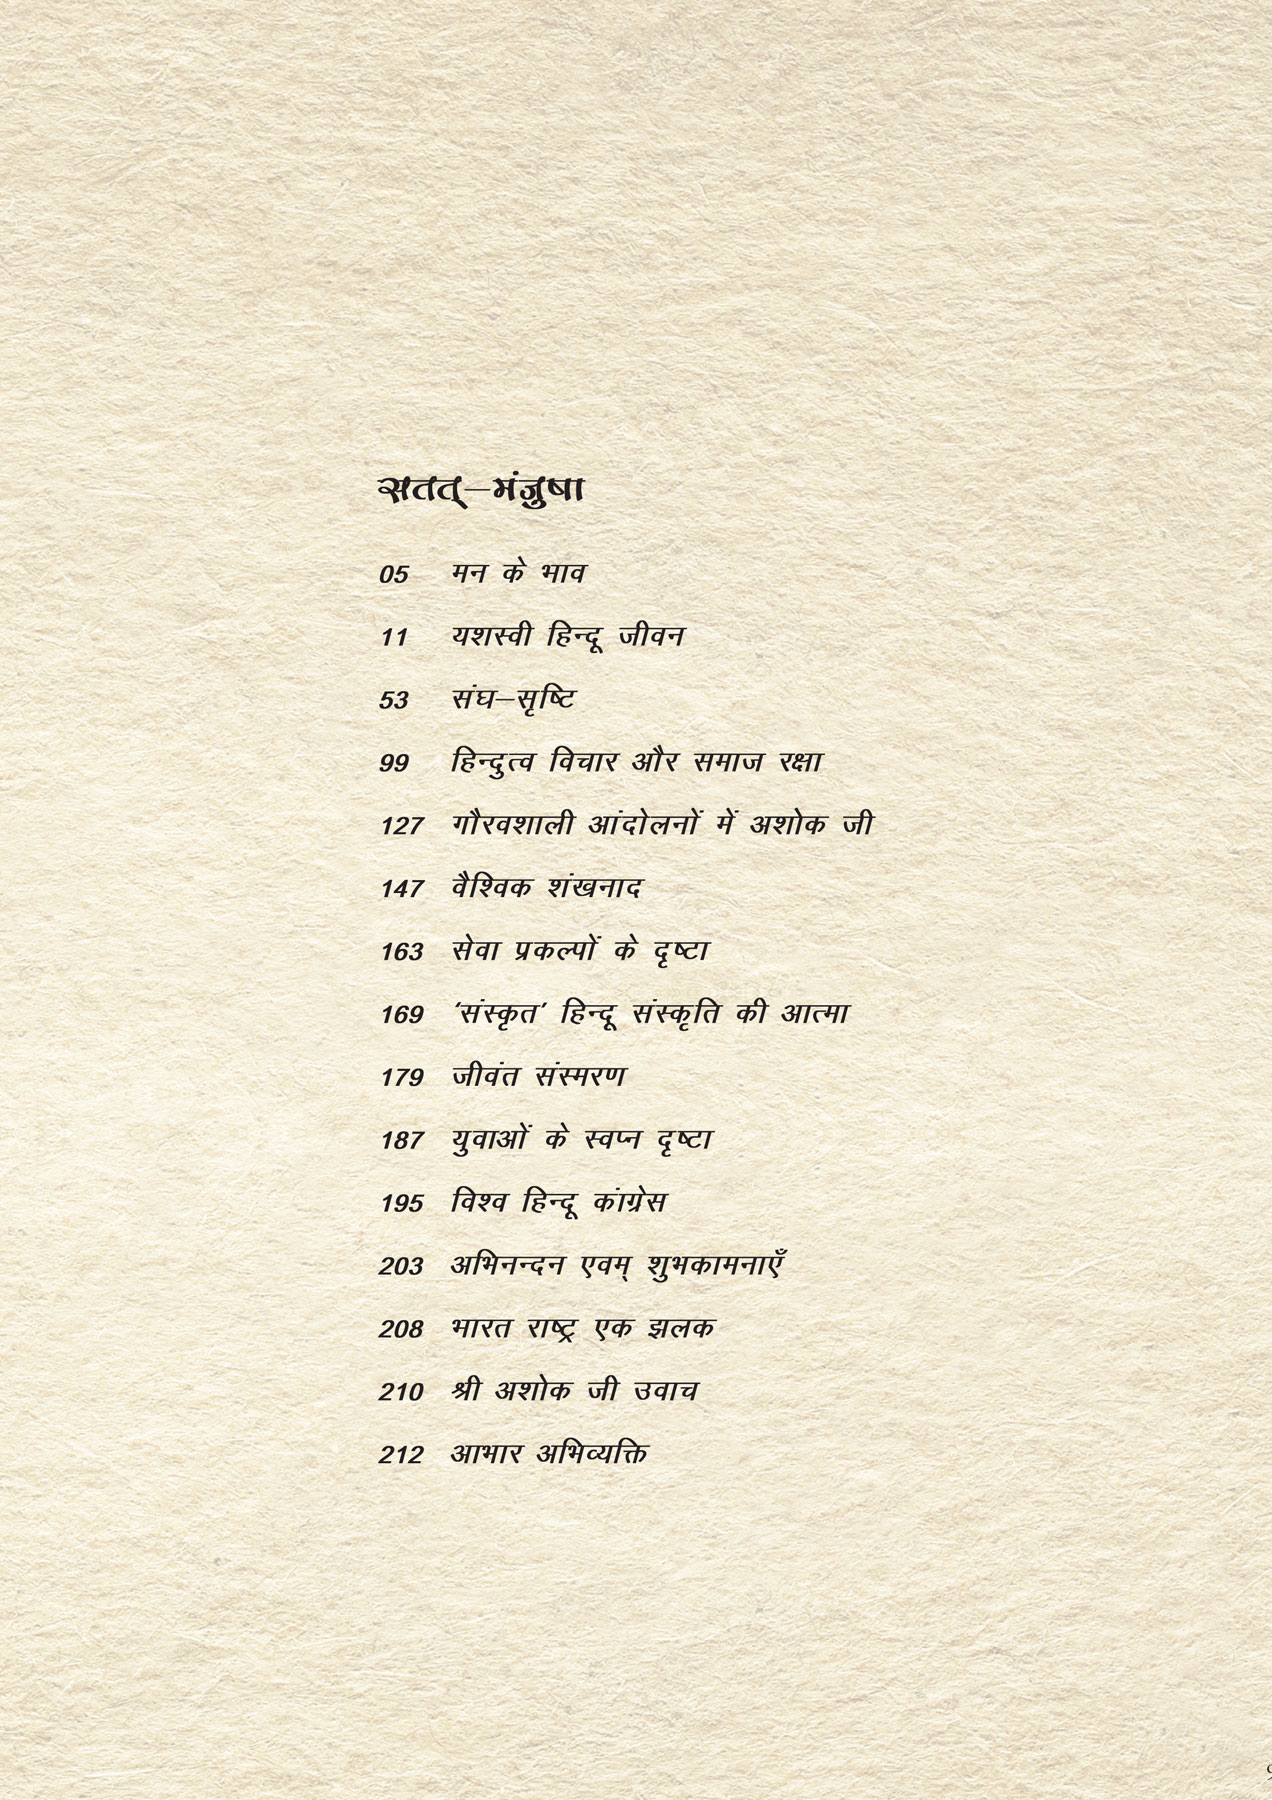 सतत्–मंजुषा
05 मन के भाव
11 यशस्वी हिन्दू जीवन
53 संघ–सृष्टि
99 हिन्दुत्व विचार और समाज रक्षा
127 गौरवशाली आंदोलनों में अशोक जी
147 वैश्विक शंखनाद
163 सेवा प्रकल्पों के दृष्टा
169 ‘संस्कृत’ हिन्दू संस्कृति की आत्मा
179 जीवंत संस्मरण
187 युवाओं के स्वप्न दृष्टा
195 विश्व हिन्दू कांग्रेस
203 अभिनन्दन एवम् शुभकामनाएँ
208 भारत राष्ट्र एक झलक
210 श्री अशोक जी उवाच
212 आभार अभिव्यक्ति